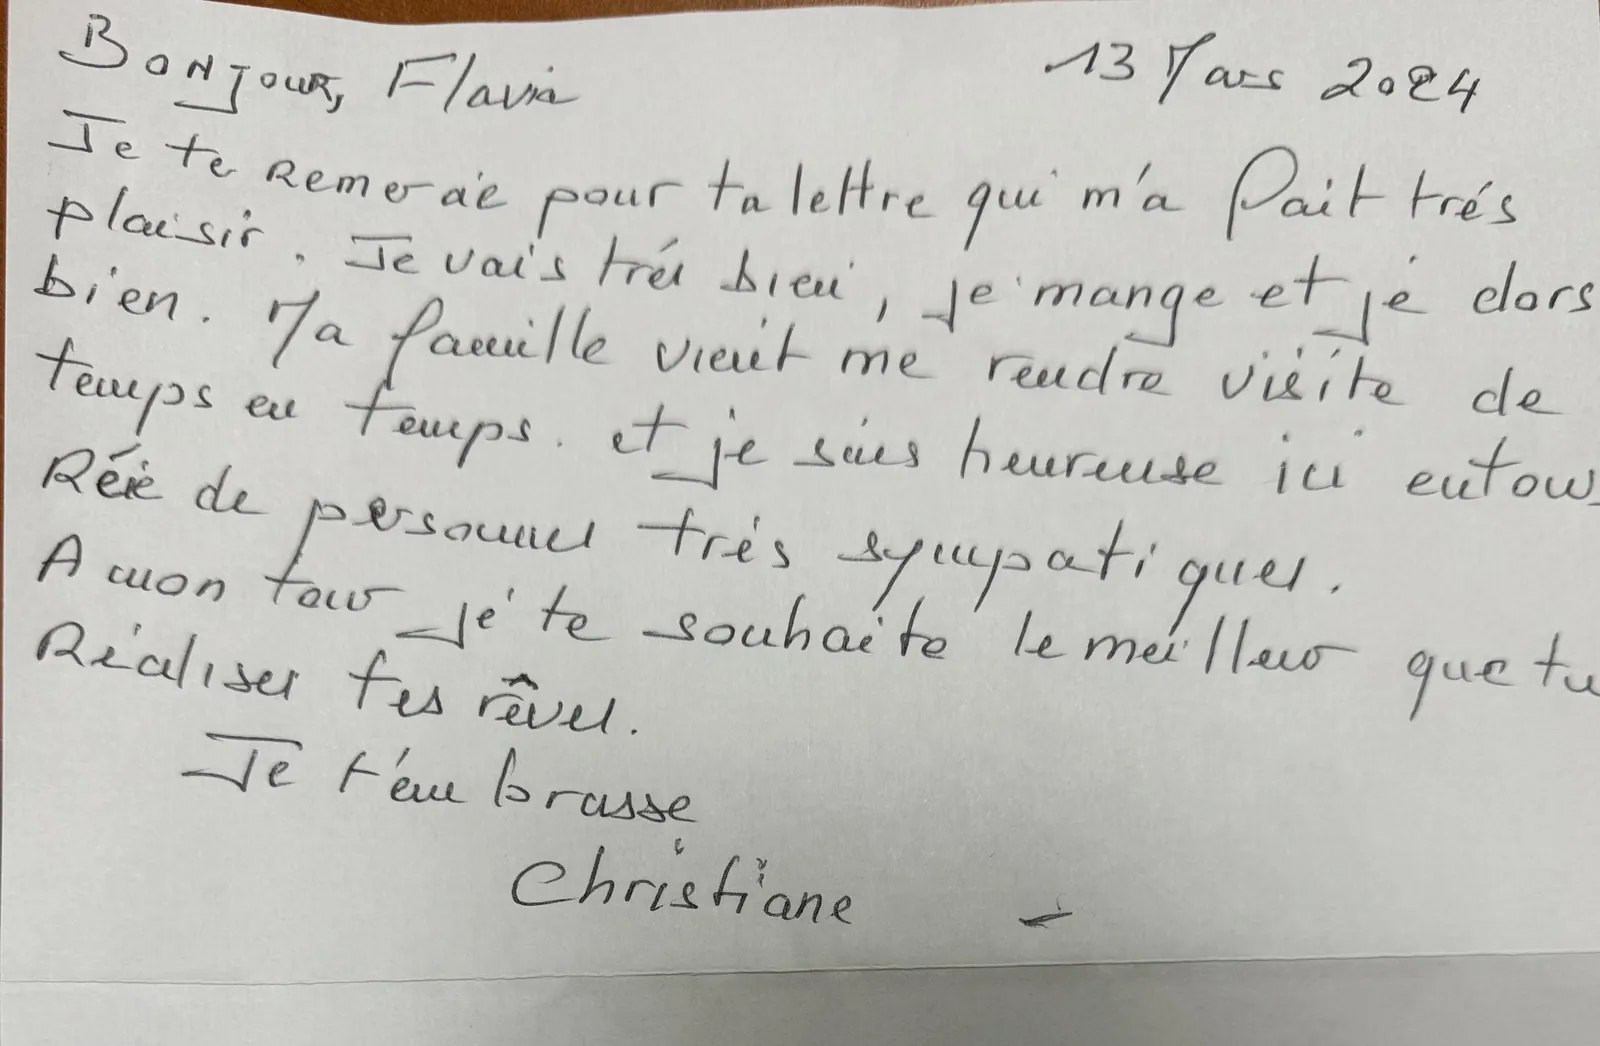 Bonjour, Flavia 13 Mars 2024
Je te Remercie pour ta lettre qui m'a fait trés
plaisir. Je vais trés bien, je mange et je dors
bien. Ma famille vient me rendre visite de
temps en temps. et je suis heureuse ici entou-
Rée de personnes trés sympatiques.
A mon tour je te souhaite le meilleur que tu
Réalises tes rêves.
Je t'embrasse
Christiane